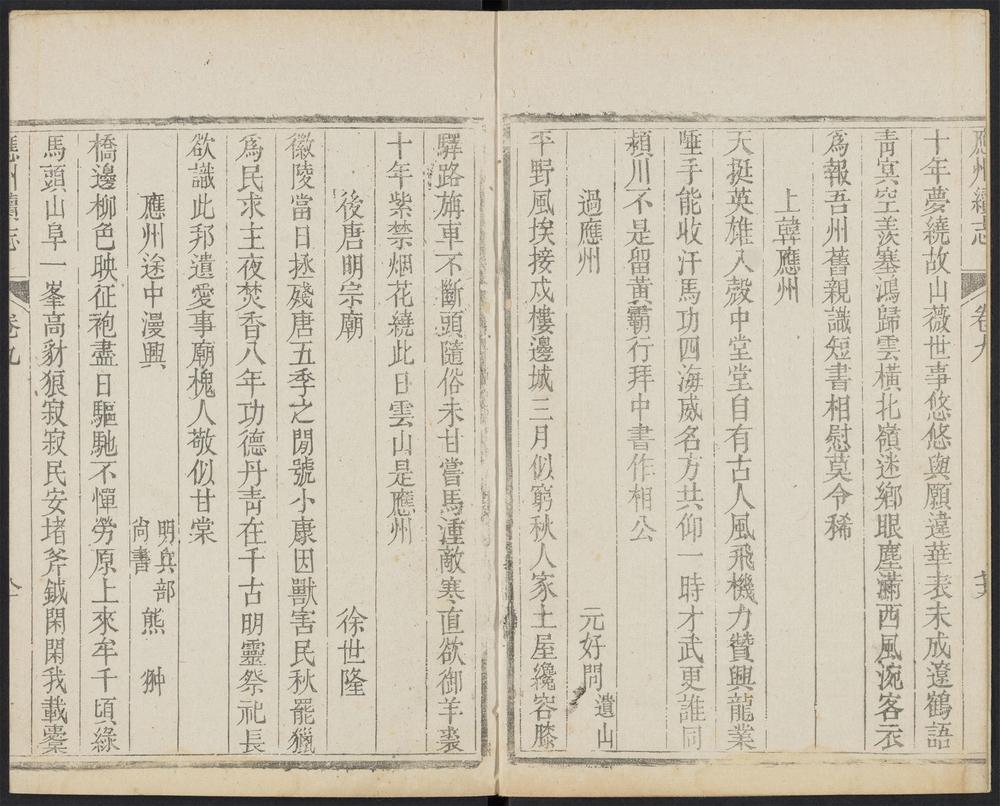 應州續志 卷九
十年夢繞故山薇世事悠悠與願違華表未成遼鶴語
青冥空羨塞鴻歸雲橫北嶺迷鄉眼塵滿西風涴客衣
爲報吾州舊親識短書相慰莫令稀
上韓應州
天挺英雄入彀中堂堂自有古人風飛機力贊興龍業
唾手能收汗馬功四海威名方共仰一時才武更誰同
潁川不是留黃霸行拜中書作相公
過應州 元好問 遺山
平野風埃接戍樓邊城三月似窮秋人家土屋纔容膝
驛路旃車不斷頭隨俗未甘嘗馬湩敵寒直欲御羊裘
十年紫禁烟花繞此日雲山是應州
後唐明宗廟 徐世隆
徽陵當日拯殘唐五季之閒號小康因獸害民秋罷獵
爲民求主夜焚香八年功德丹靑在千古明靈祭祀長
欲識此邦遺愛事廟槐人敬似甘棠
應州途中漫興 明兵部尙書 熊翀
橋邊柳色映征袍盡日驅馳不憚勞原上來牟千頃綠
馬頭山阜一峯高豺狼寂寂民安堵斧鉞閑閑我載櫜
應州續志 卷九